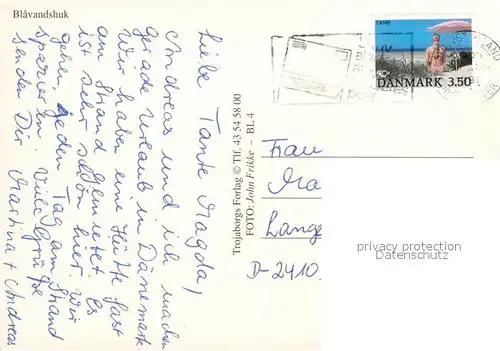 Blåvandshuk
Liebe Tante Magda,
Andreas und ich machen
gerade Urlaub in Dänemark.
Wir haben eine Hütte fast
am Strand gemietet. Es
ist sehr schön hier. Wir
gehen jeden Tag am Strand
spazieren. Viele Grüße
senden Dir Martina + Andreas
Trojaborgs Forlag © Tlf. 43 54 58 00
FOTO: John Frikke – BL 4
FANØ
DANMARK 3.50
Frau
Ma
Lange
D-2410
privacy protection
Datenschutz